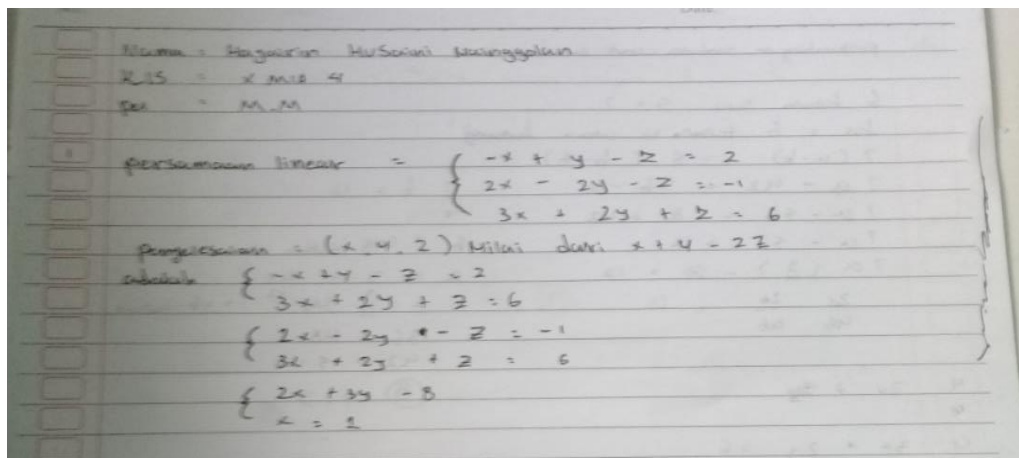 Nama : Hagairin Husaini Nainggolan
KLS = X MIA 4
Per = M.M
persamaan linear = { -x + y - z = 2
2x - 2y - z = -1
3x + 2y + z = 6
penyelesaian = (x, y, z) Nilai dari x + y - 2z
adalah { -x + y - z = 2
3x + 2y + z = 6
{ 2x - 2y - z = -1
3x + 2y + z = 6
{ 2x + 3y = 8
x = 1